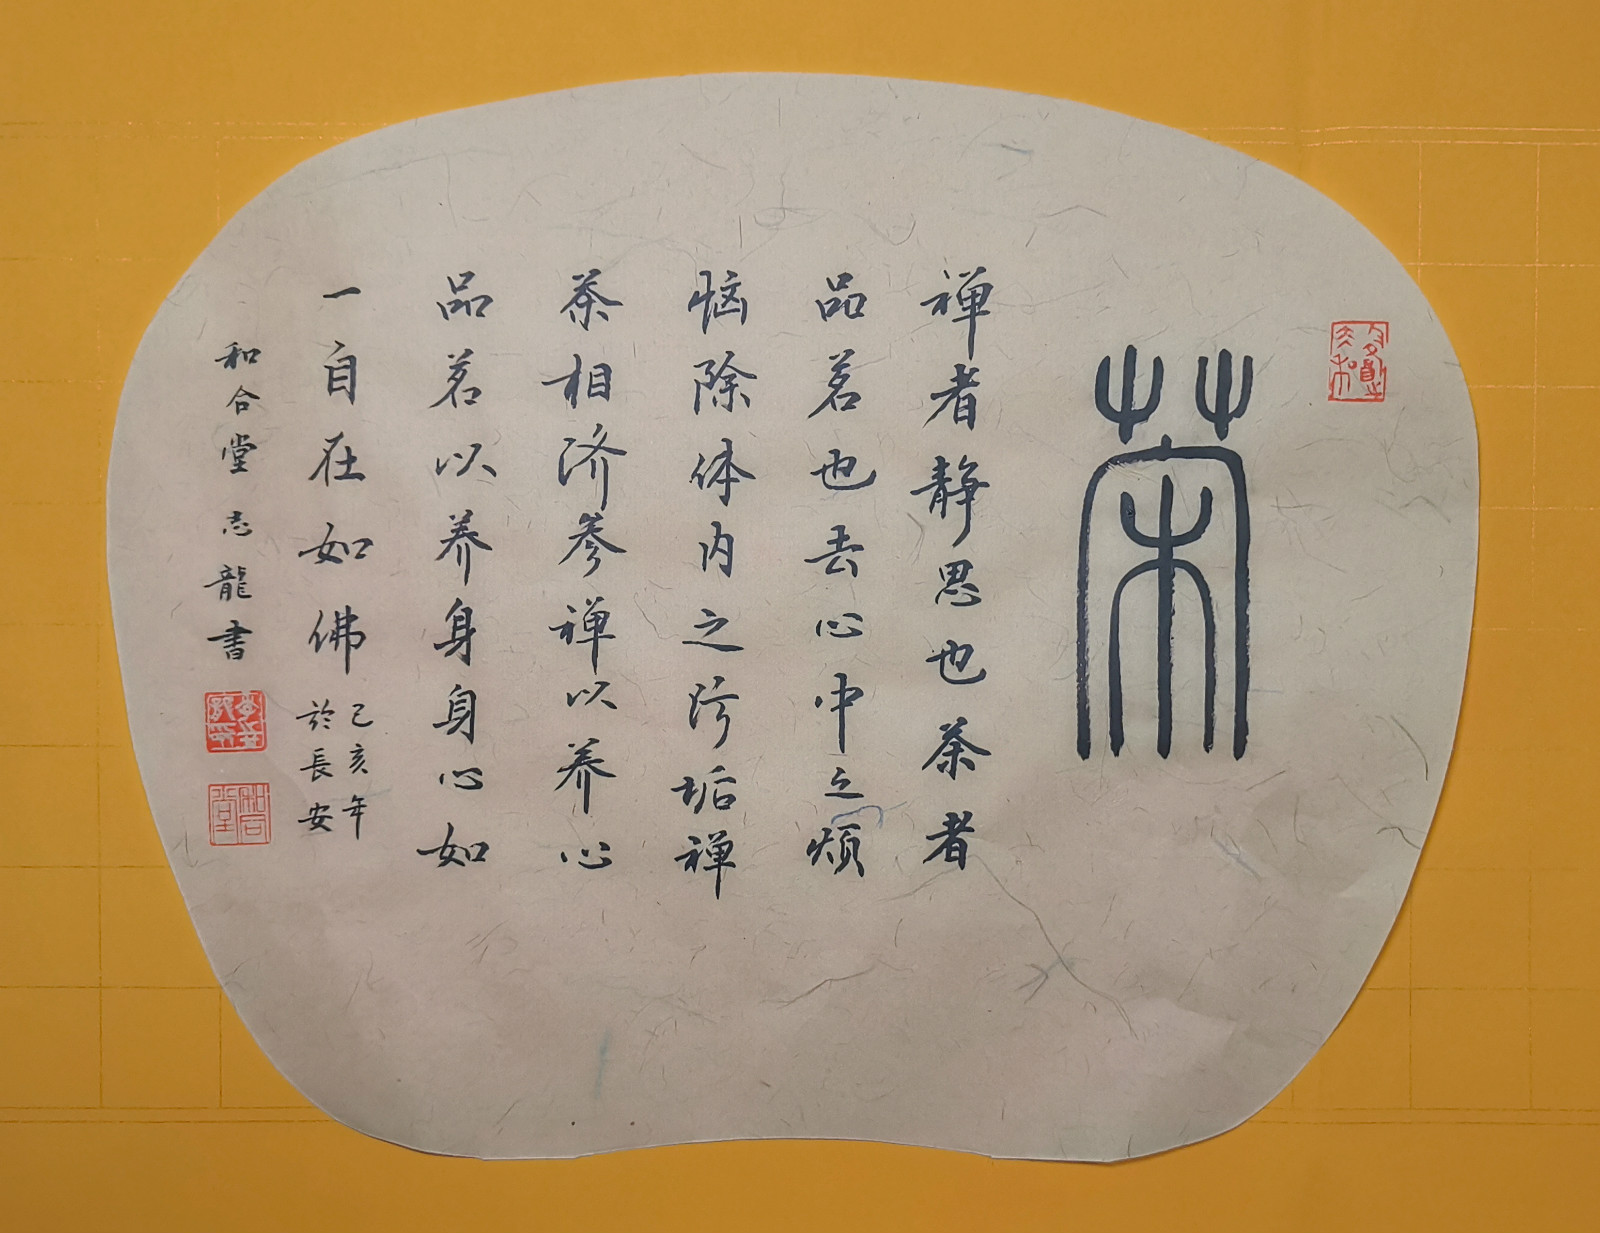 茶
禅者静思也茶者
品茗也去心中之烦
恼除体内之污垢禅
茶相济参禅以养心
品茗以养身身心如
一自在如佛
己亥年
於長安
和合堂志龍書
和合堂